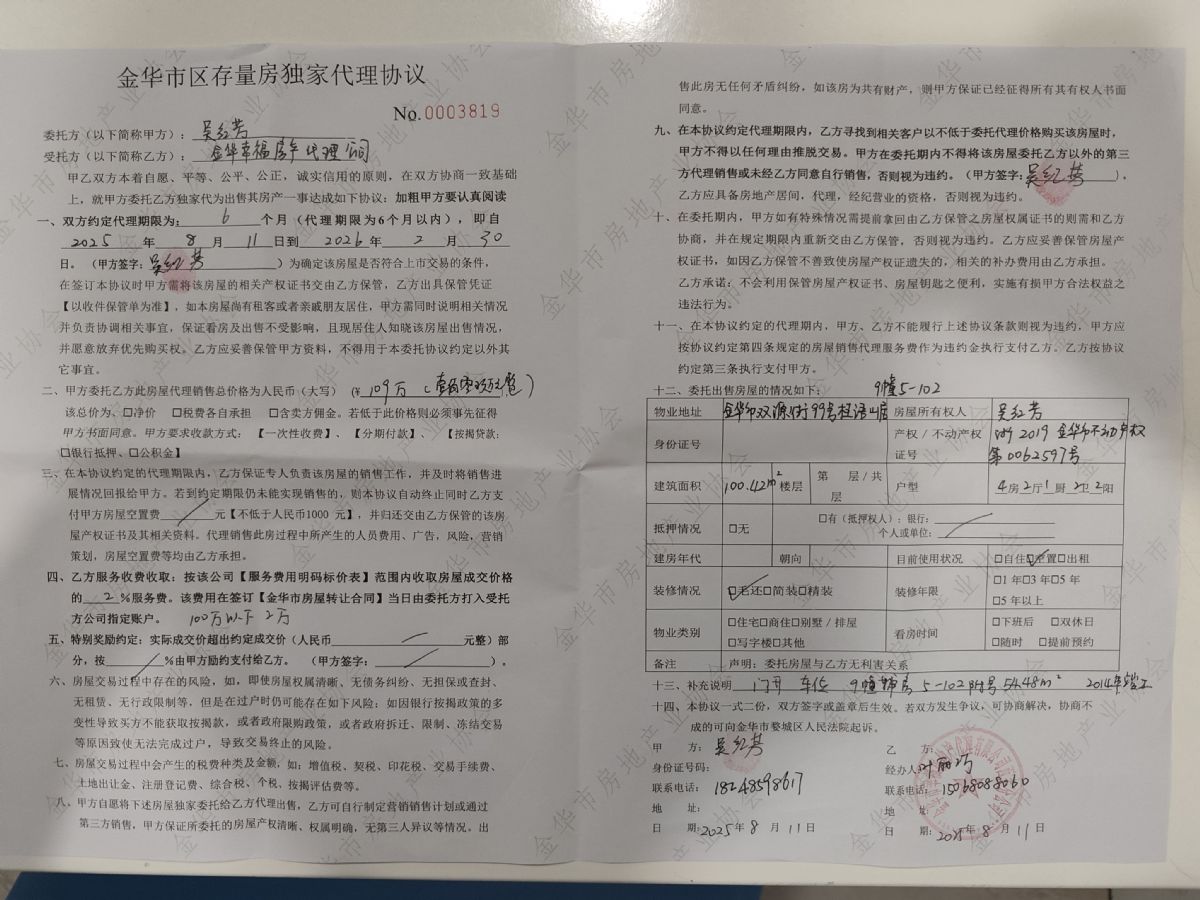 金华市区存量房独家代理协议
No.0003819
委托方（以下简称甲方）：吴红芳
受托方（以下简称乙方）：金华幸福房产代理公司
甲乙双方本着自愿、平等、公平、公正，诚实信用的原则，在双方协商一致基础
上，就甲方委托乙方独家代为出售其房产一事达成如下协议：加粗甲方要认真阅读
一、双方约定代理期限为：6个月（代理期限为6个月以内），即自
2025年8月11日到2026年2月30
日。（甲方签字：吴红芳）为确定该房屋是否符合上市交易的条件，
在签订本协议时甲方需将该房屋的相关产权证书交由乙方保管，乙方出具保管凭证
【以收件保管单为准】，如本房屋尚有租客或者亲戚朋友居住，甲方需同时说明相关情况
并负责协调相关事宜，保证看房及出售不受影响，且现居住人知晓该房屋出售情况，
并愿意放弃优先购买权。乙方应妥善保管甲方资料，不得用于本委托协议约定以外其
它事宜。
二、甲方委托乙方此房屋代理销售总价格为人民币（大写）（¥109万（壹佰零玖万元整）
该总价为、□净价 □税费各自承担 □含卖方佣金。若低于此价格则必须事先征得
甲方书面同意。甲方要求收款方式：【一次性收费】、【分期付款】、【按揭贷款：
□银行抵押、□公积金】
三、在本协议约定的代理期限内，乙方保证专人负责该房屋的销售工作，并及时将销售进
展情况回报给甲方。若到约定期限仍未能实现销售的，则本协议自动终止同时乙方支
付甲方房屋空置费 元【不低于人民币1000 元】，并归还交由乙方保管的该房
屋产权证书及其相关资料。代理销售此房过程中所产生的人员费用、广告，风险，营销
策划，房屋空置费等均由乙方承担。
四、乙方服务收费收取：按该公司【服务费用明码标价表】范围内收取房屋成交价格
的2%服务费。该费用在签订【金华市房屋转让合同】当日由委托方打入受托
方公司指定账户。 100万以下2万
五、特别奖励约定：实际成交价超出约定成交价（人民币 元整）部
分，按 %由甲方励约支付给乙方。（甲方签字： ）。
六、房屋交易过程中存在的风险，如，即使房屋权属清晰、无债务纠纷、无担保或查封、
无租赁、无行政限制等，但是在过户时仍可能存在如下风险：如因银行按揭政策的多
变性导致买方不能获取按揭款，或者政府限购政策，或者政府拆迁、限制、冻结交易
等原因致使无法完成过户，导致交易终止的风险。
七、房屋交易过程中会产生的税费种类及金额，如：增值税、契税、印花税、交易手续费、
土地出让金、注册登记费、综合税、个税、按揭评估费等。
八、甲方自愿将下述房屋独家委托给乙方代理出售，乙方可自行制定营销销售计划或通过
第三方销售，甲方保证所委托的房屋产权清晰、权属明确，无第三人异议等情况。出
售此房无任何矛盾纠纷，如该房为共有财产，则甲方保证已经征得所有其有权人书面
同意。
九、在本协议约定代理期限内，乙方寻找到相关客户以不低于委托代理价格购买该房屋时，
甲方不得以任何理由推脱交易。甲方在委托期内不得将该房屋委托乙方以外的第三
方代理销售或未经乙方同意自行销售，否则视为违约。（甲方签字：吴红芳），
乙方应具备房地产居间，代理，经纪营业的资格，否则视为违约。
十、在委托期内，甲方如有特殊情况需提前拿回由乙方保管之房屋权属证书的则需和乙方
协商，并在规定期限内重新交由乙方保管，否则视为违约。乙方应妥善保管房屋产
权证书，如因乙方保管不善致使房屋产权证遗失的，相关的补办费用由乙方承担。
乙方承诺：不会利用保管房屋产权证书、房屋钥匙之便利，实施有损甲方合法权益之
违法行为。
十一、在本协议约定的代理期内，甲方、乙方不能履行上述协议条款则视为违约，甲方应
按协议约定第四条规定的房屋销售代理服务费作为违约金执行支付乙方。乙方按协议
约定第三条执行支付甲方。
十二、委托出售房屋的情况如下： 9幢5-102
物业地址 金华市双源街99号桂语山居 房屋所有权人 吴红芳
身份证号 产权/不动产权证号 浙2019金华市不动产权第0062597号
建筑面积 100.42m² 楼层 第 层/共 层 户型 4房2厅1厨2卫2阳
抵押情况 □无 □有（抵押权人）：银行： 个人或单位：
建房年代 朝向 目前使用状况 □自住□空置□出租
装修情况 □毛还□简装□精装 装修年限 □1年□3年□5年 □5年以上
物业类别 □住宅□商住□别墅/排屋 □写字楼□其他 看房时间 □下班后 □双休日 □随时 □提前预约
备注 声明：委托房屋与乙方无利害关系
十三、补充说明 车位 9幢辅房5-102附号54.48m² 2014年竣工
十四、本协议一式二份，双方签字或盖章后生效。若双方发生争议，可协商解决，协商不
成的可向金华市婺城区人民法院起诉。
甲 方：吴红芳 乙 方：
身份证号码： 经办人：叶丽巧
联系电话：18248598617 联系电话：15068088060
地 址： 地 址：
日 期：2025年8月11日 日 期：2025年8月11日